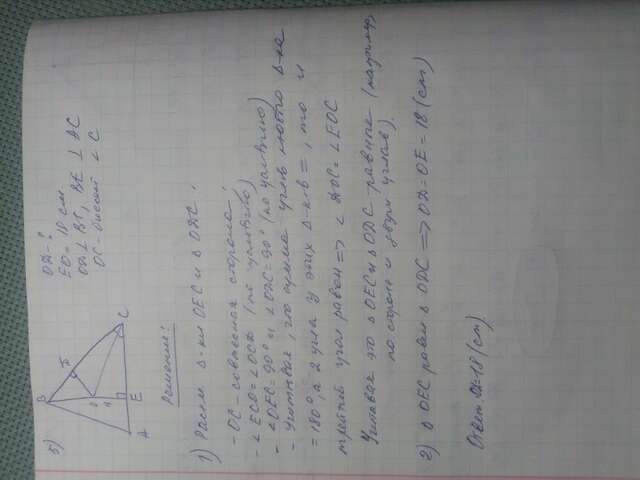 5)
B
D
O
H
E
A
C
OD-?
EO = 18 см
OD ⊥ BC, BE ⊥ AC
OC-биссект. ∠ C
Решение:
1) Рассм. Δ-ки OEC и Δ ODC:
- OC - совместная сторона;
- ∠ECO = ∠OCD (по условию)
- ∠OEC = 90° и ∠ODC = 90° (по условию)
- Учитывая, что сумма углов любого Δ-ка
= 180°, а 2 угла у этих Δ-к-в =, то и
третий угол равен => ∠ DOC = ∠EOC
Учитывая это Δ OEC и Δ ODC равные (например,
по стороне и двум углам).
2) Δ OEC равен Δ ODC => OD = OE = 18 (см)
Ответ: 18 (см)